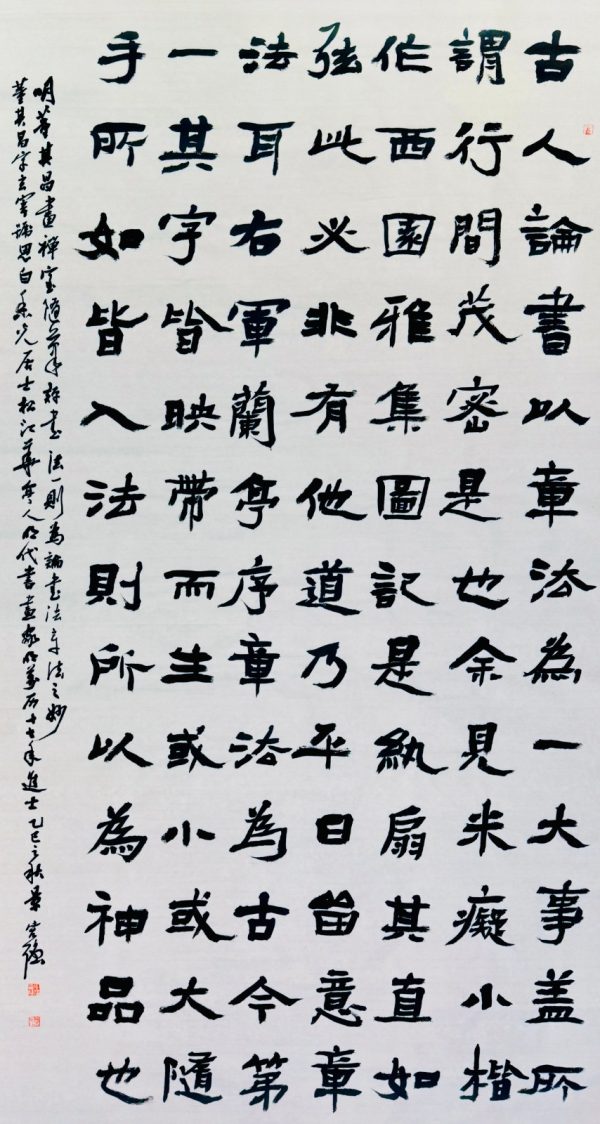 古人論書以章法為一大事盖所
謂行間茂密是也余見米癡小楷
作西園雅集圖記是紈扇其直如
弦此必非有他道乃平日留意章
法耳右軍蘭亭序章法為古今第
一其字皆映帶而生或小或大隨
手所如皆入法則所以為神品也
明董其昌畫禪室隨筆評書法一則為論書法章法之妙
董其昌字玄宰號思白香光居士松江華亭人明代書畫家明萬历十七年進士乙巳之秋